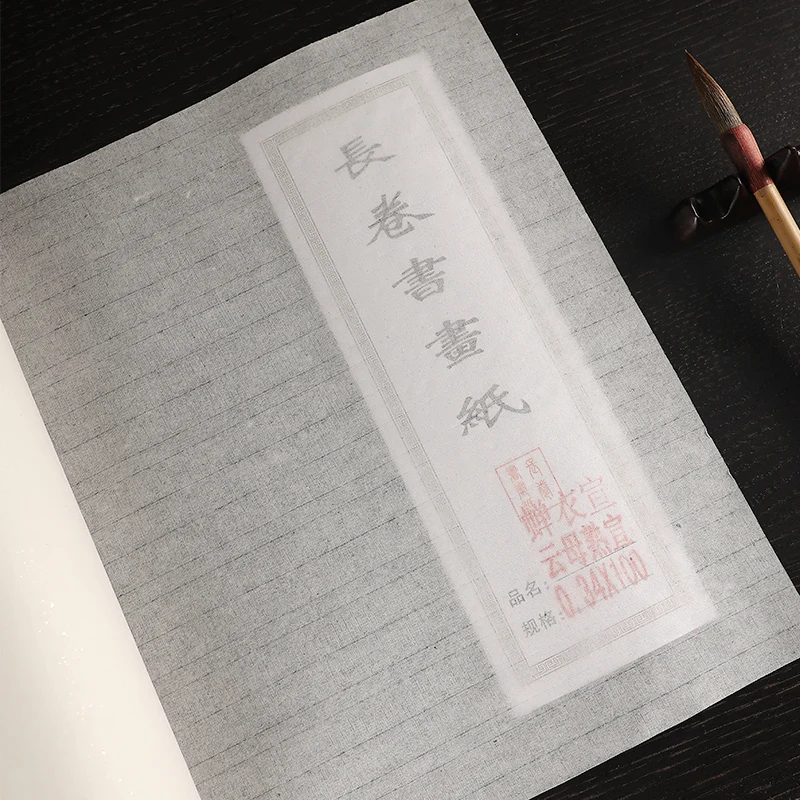 長卷書畫紙
蝉衣宣
品名：云母熟宣
规格：0.34X100